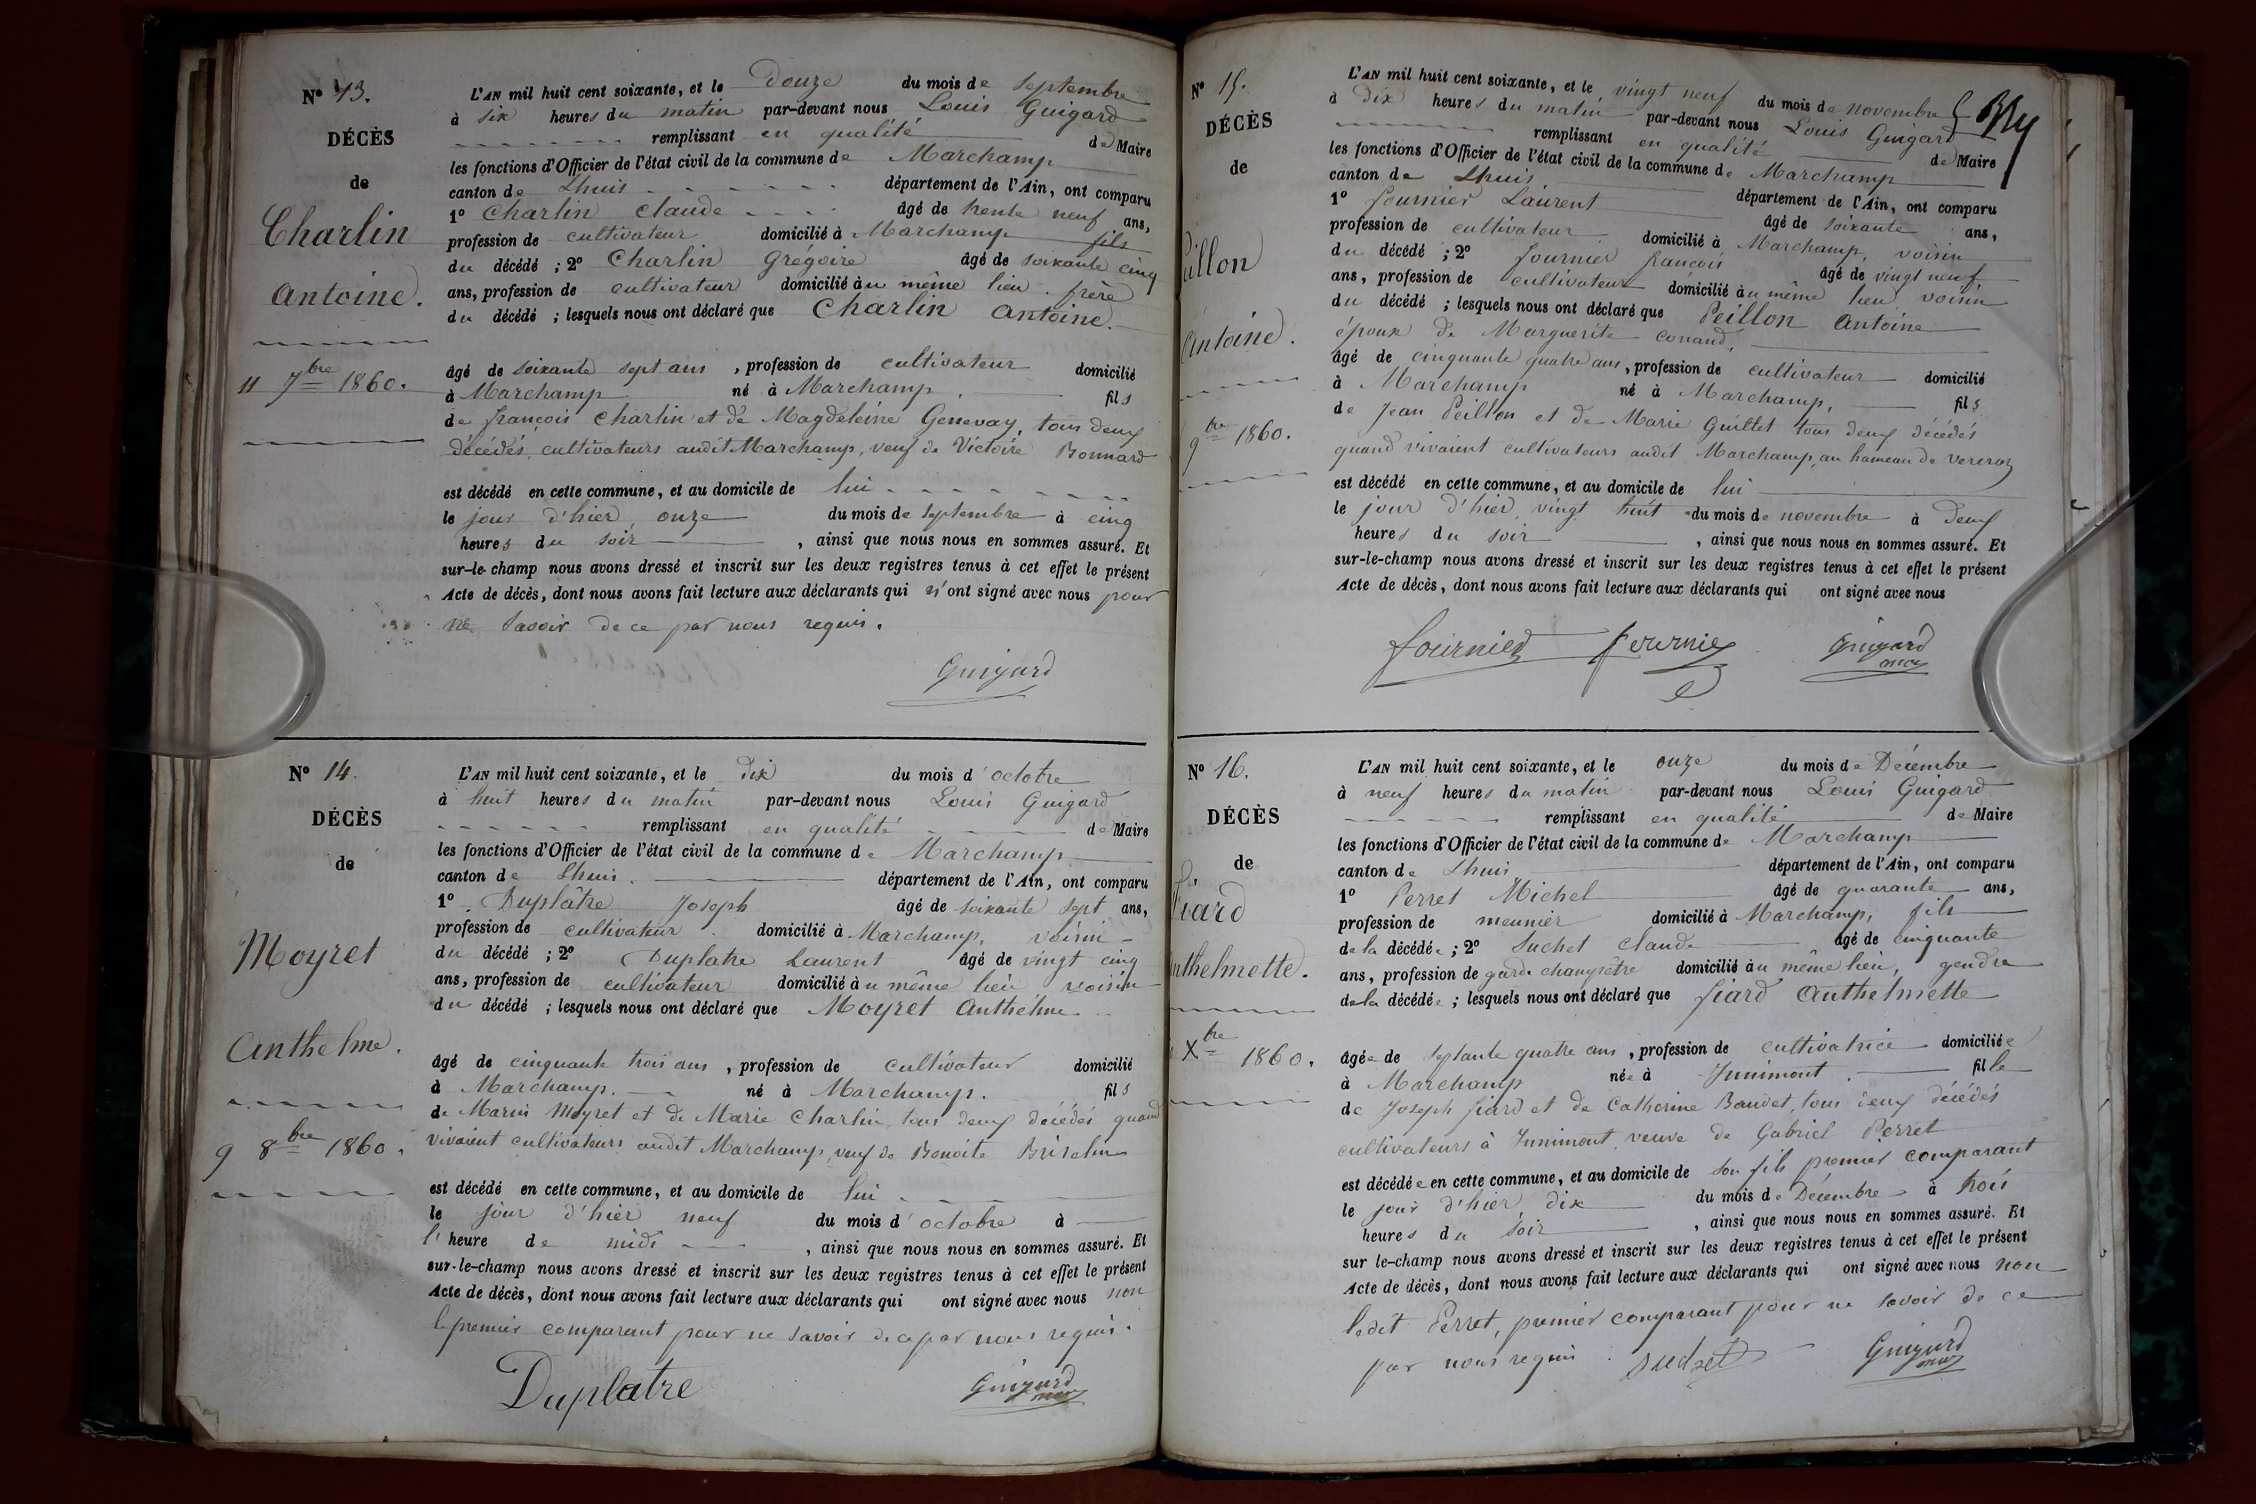 N° 13.
DÉCÈS
de
Charlin
Antoine.
11 7bre 1860.
L'AN mil huit cent soixante, et le Douze du mois de Septembre
à six heures du matin par-devant nous Louis Guigard
remplissant en qualité de Maire
les fonctions d'Officier de l'état civil de la commune de Marchamp
canton de Lhuis département de l'Ain, ont comparu
1° Charlin Claude âgé de trente neuf ans,
profession de cultivateur domicilié à Marchamp fils
du décédé ; 2° Charlin Grégoire âgé de soixante cinq
ans, profession de cultivateur domicilié au même lieu frère
du décédé ; lesquels nous ont déclaré que Charlin Antoine.
âgé de soixante sept ans , profession de cultivateur domicilié
à Marchamp né à Marchamp, fils
de françois Charlin et de Magdeleine Genevay, tous deux
décédés, cultivateurs audit Marchamp, veuf de Victoire Bonnard
est décédé en cette commune, et au domicile de lui
le jour d'hier, onze du mois de Septembre à cinq
heures du soir , ainsi que nous nous en sommes assuré. Et
sur-le-champ nous avons dressé et inscrit sur les deux registres tenus à cet effet le présent
Acte de décès, dont nous avons fait lecture aux déclarants qui n'ont signé avec nous pour
ne savoir de ce par nous requis.
Guigard
N° 14.
DÉCÈS
de
Moyret
Anthelme.
9 8bre 1860.
L'AN mil huit cent soixante, et le dix du mois d'octobre
à huit heures du matin par-devant nous Louis Guigard
remplissant en qualité de Maire
les fonctions d'Officier de l'état civil de la commune de Marchamp
canton de Lhuis. département de l'Ain, ont comparu
1° Duplâtre Joseph âgé de soixante sept ans,
profession de cultivateur domicilié à Marchamp, voisin
du décédé ; 2° Duplatre Laurent âgé de vingt cinq
ans, profession de cultivateur domicilié au même lieu voisin
du décédé ; lesquels nous ont déclaré que Moyret Anthelme
âgé de cinquante trois ans , profession de cultivateur domicilié
à Marchamp. né à Marchamp. fils
de Marin Moyret et de Marie Charlin, tous deux décédés quand
vivaient cultivateurs audit Marchamp, veuf de Benoite
est décédé en cette commune, et au domicile de lui
le jour d'hier neuf du mois d'octobre à
l'heure de midi , ainsi que nous nous en sommes assuré. Et
sur-le-champ nous avons dressé et inscrit sur les deux registres tenus à cet effet le présent
Acte de décès, dont nous avons fait lecture aux déclarants qui ont signé avec nous non
le premier comparant pour ne savoir de ce par nous requis.
Duplatre Guigard maire
N° 15.
DÉCÈS
de
eillon
Antoine.
9bre 1860.
L'AN mil huit cent soixante, et le vingt neuf du mois de novembre
à dix heures du matin par-devant nous Louis Guigard
remplissant en qualité de Maire
les fonctions d'Officier de l'état civil de la commune de Marchamp
canton de Lhuis département de l'Ain, ont comparu
1° fournier Laurent âgé de soixante ans,
profession de cultivateur domicilié à Marchamp, voisin
du décédé ; 2° fournier françois âgé de vingt neuf
ans, profession de cultivateur domicilié au même lieu voisin
du décédé ; lesquels nous ont déclaré que Peillon Antoine
époux de Marguerite Conand,
âgé de cinquante quatre ans, profession de cultivateur domicilié
à Marchamp né à Marchamp, fils
de Jean Peillon et de Marie Guillet tous deux décédés
quand vivaient cultivateurs audit Marchamp, au hameau de
est décédé en cette commune, et au domicile de lui
le jour d'hier, vingt huit du mois de novembre à deux
heures du soir , ainsi que nous nous en sommes assuré. Et
sur-le-champ nous avons dressé et inscrit sur les deux registres tenus à cet effet le présent
Acte de décès, dont nous avons fait lecture aux déclarants qui ont signé avec nous
fournier fournier Guigard maire
N° 16.
DÉCÈS
de
fiard
nthelmette.
Xbre 1860.
L'AN mil huit cent soixante, et le onze du mois de Décembre
à neuf heures du matin par-devant nous Louis Guigard
remplissant en qualité de Maire
les fonctions d'Officier de l'état civil de la commune de Marchamp
canton de Lhuis département de l'Ain, ont comparu
1° Perret Michel âgé de quarante ans,
profession de meunier domicilié à Marchamp, fils
de la décédée ; 2° Suchet Claude âgé de cinquante
ans, profession de garde champêtre domicilié au même lieu, gendre
de la décédée ; lesquels nous ont déclaré que fiard Anthelmette
âgée de septante quatre ans , profession de cultivatrice domiciliée
à Marchamp née à Innimont. fille
de Joseph fiard et de Catherine Baudet, tous deux décédés
cultivateurs à Innimont, veuve de Gabriel Perret
est décédée en cette commune, et au domicile de son fils premier comparant
le jour d'hier, dix du mois de Décembre à trois
heures du soir , ainsi que nous nous en sommes assuré. Et
sur le-champ nous avons dressé et inscrit sur les deux registres tenus à cet effet le présent
Acte de décès, dont nous avons fait lecture aux déclarants qui ont signé avec nous non
ledit Perret, premier comparant pour ne savoir de ce
par nous requis. Suchet Guigard maire